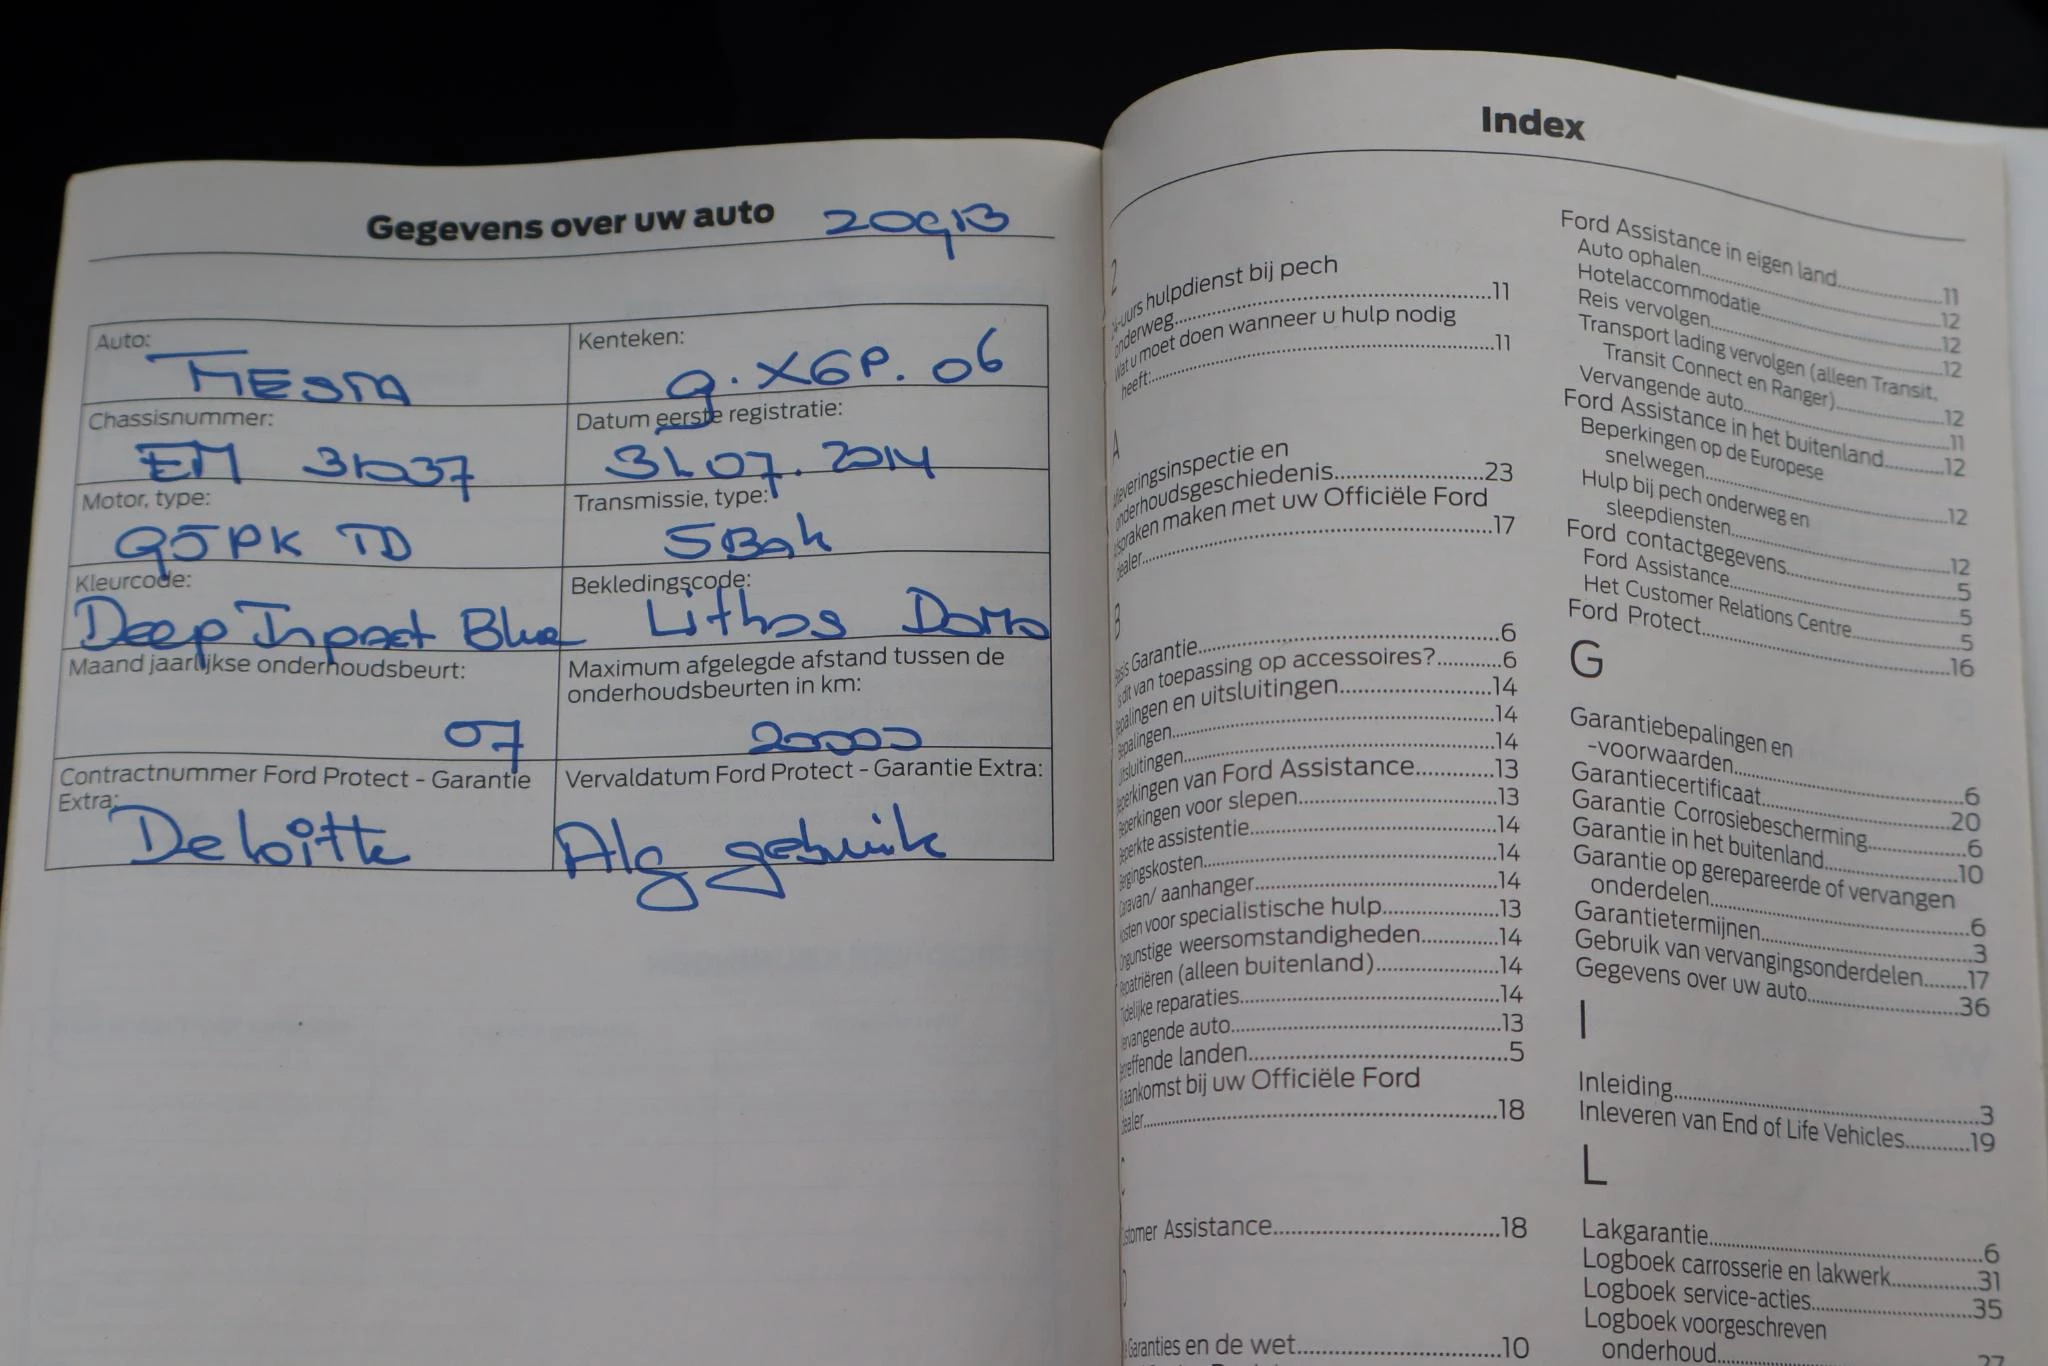 Gegevens over uw auto 20913
Auto:
FIESTA
Kenteken:
9.XGP.06
Chassisnummer:
EM 31037
Datum eerste registratie:
31.07.2014
Motor, type:
95PK TD
Transmissie, type:
5Bak
Kleurcode:
Deep Inpact Blue
Bekledingscode:
Lithos Domo
Maand jaarlijkse onderhoudsbeurt:
07
Maximum afgelegde afstand tussen de
onderhoudsbeurten in km:
20000
Contractnummer Ford Protect - Garantie
Extra:
Deloitte
Vervaldatum Ford Protect - Garantie Extra:
Alg gebruik
Index
2
hulpdienst bij pech
onderweg..........11
Wat u moet doen wanneer u hulp nodig
heeft:..........11
A
Afleveringsinspectie en
onderhoudsgeschiedenis..........23
maken met uw Officiële Ford
dealer..........17
B
Basis Garantie..........6
Is dit van toepassing op accessoires?..........6
Bepalingen en uitsluitingen..........14
Bepalingen..........14
Uitsluitingen..........14
Beperkingen van Ford Assistance..........13
Beperkingen voor slepen..........13
Beperkte assistentie..........14
Bergingskosten..........14
Caravan/ aanhanger..........14
Kosten voor specialistische hulp..........13
Ongunstige weersomstandigheden..........14
Repatriëren (alleen buitenland)..........14
Tijdelijke reparaties..........14
Vervangende auto..........13
Betreffende landen..........5
Bij aankomst bij uw Officiële Ford
dealer..........18
Customer Assistance..........18
D
Garanties en de wet..........10
Ford Assistance in eigen land..........11
Auto ophalen..........12
Hotelaccommodatie..........12
Reis vervolgen..........12
Transport lading vervolgen (alleen Transit,
Transit Connect en Ranger)..........12
Vervangende auto..........11
Ford Assistance in het buitenland..........12
Beperkingen op de Europese
snelwegen..........12
Hulp bij pech onderweg en
sleepdiensten..........12
Ford contactgegevens..........5
Ford Assistance..........5
Het Customer Relations Centre..........5
Ford Protect..........16
G
Garantiebepalingen en
-voorwaarden..........6
Garantiecertificaat..........20
Garantie Corrosiebescherming..........6
Garantie in het buitenland..........10
Garantie op gerepareerde of vervangen
onderdelen..........6
Garantietermijnen..........3
Gebruik van vervangingsonderdelen..........17
Gegevens over uw auto..........36
I
Inleiding..........3
Inleveren van End of Life Vehicles..........19
L
Lakgarantie..........6
Logboek carrosserie en lakwerk..........31
Logboek service-acties..........35
Logboek voorgeschreven
onderhoud..........27